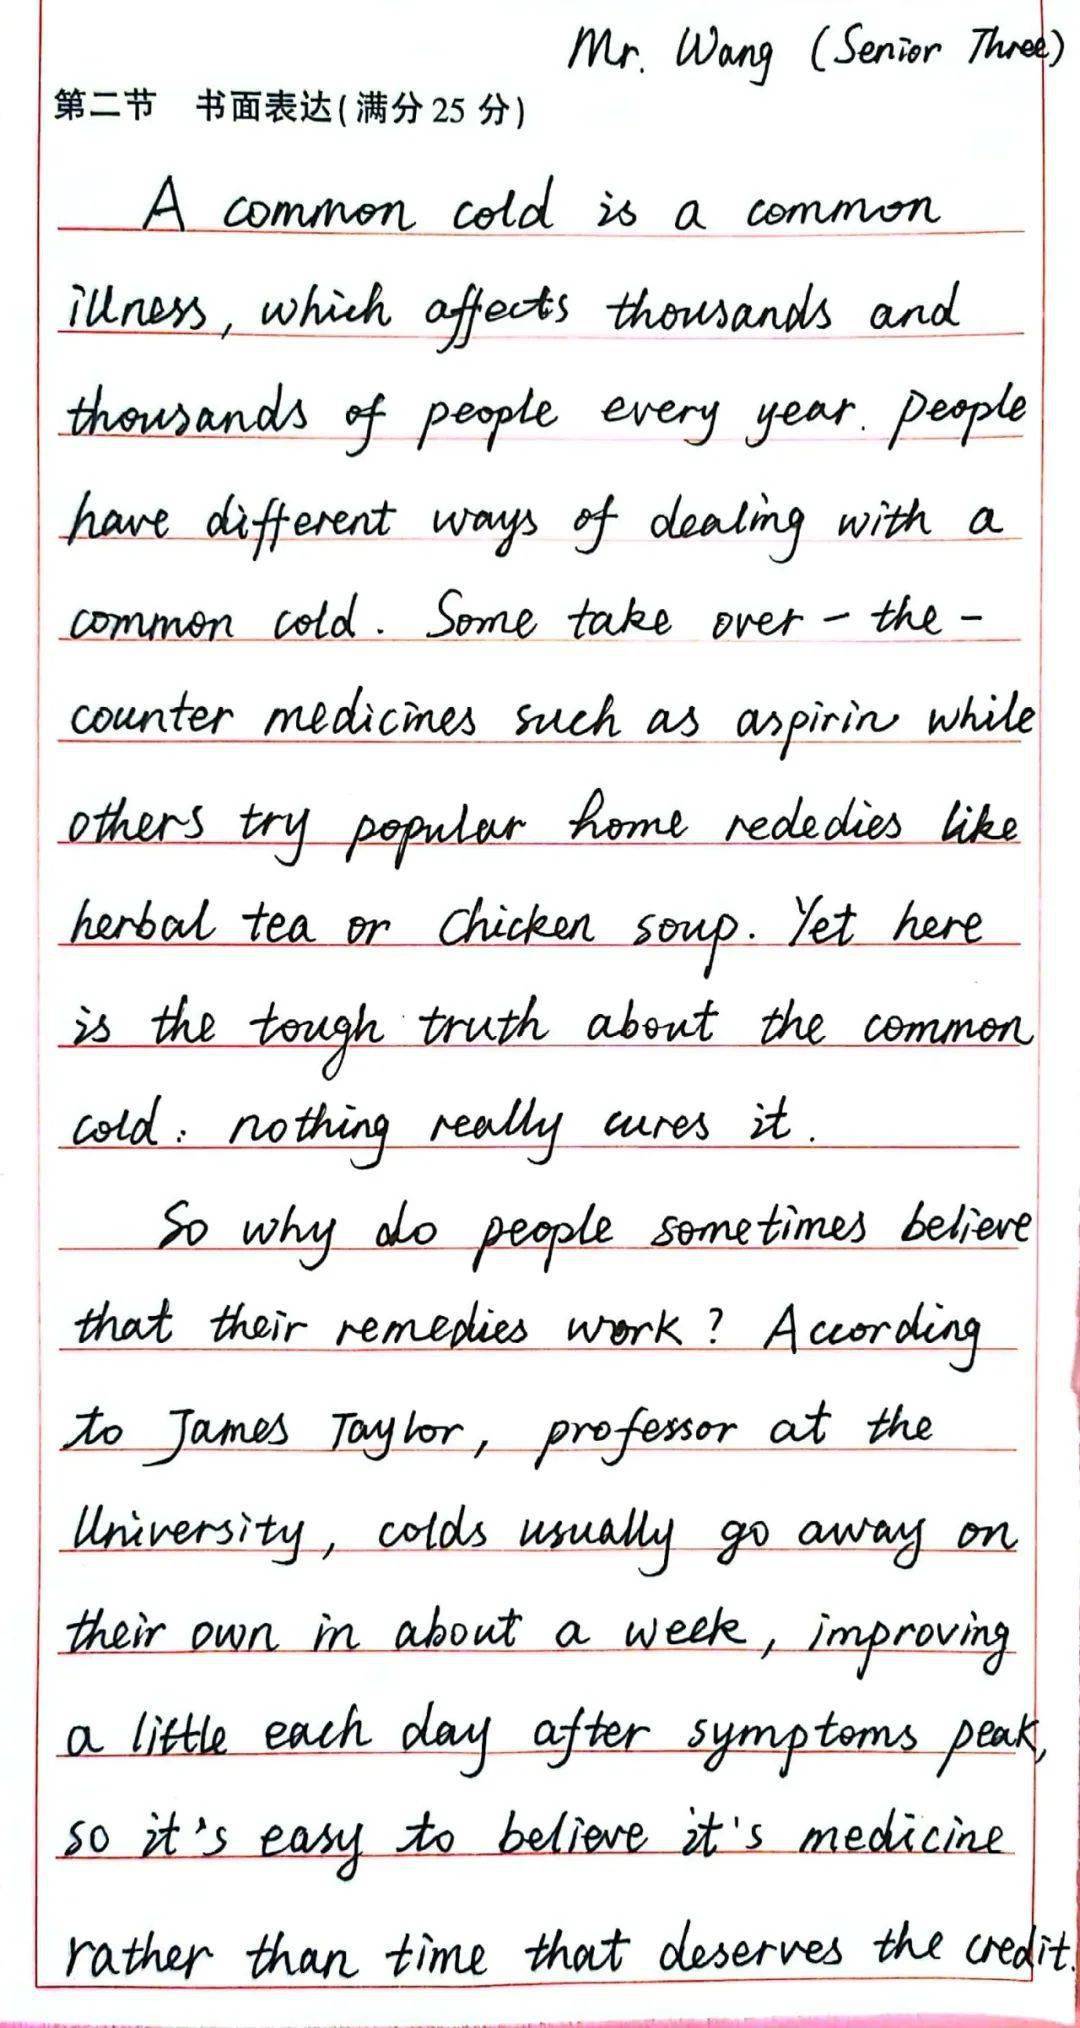 Mr. Wang (Senior Three)
第二节 书面表达(满分 25 分)
A common cold is a common
illness, which affects thousands and
thousands of people every year. people
have different ways of dealing with a
common cold. Some take over-the-
counter medicines such as aspirin while
others try popular home rededies like
herbal tea or chicken soup. Yet here
is the tough truth about the common
cold: nothing really cures it.
So why do people sometimes believe
that their remedies work? According
to James Taylor, professor at the
University, colds usually go away on
their own in about a week, improving
a little each day after symptoms peak,
so it's easy to believe it's medicine
rather than time that deserves the credit.